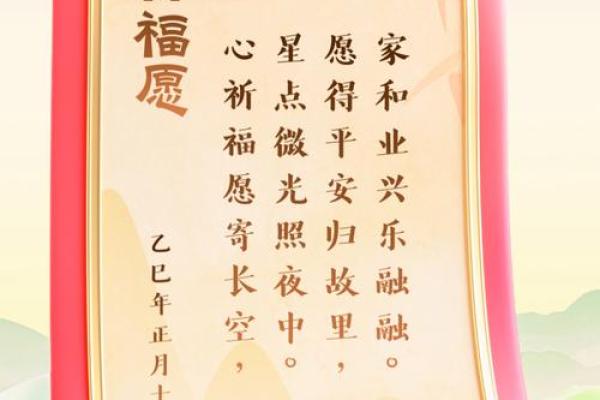 福愿
乙巳年正月十
心祈福愿寄长空，
星点微光照夜中。
愿得平安归故里，
家和业兴乐融融。